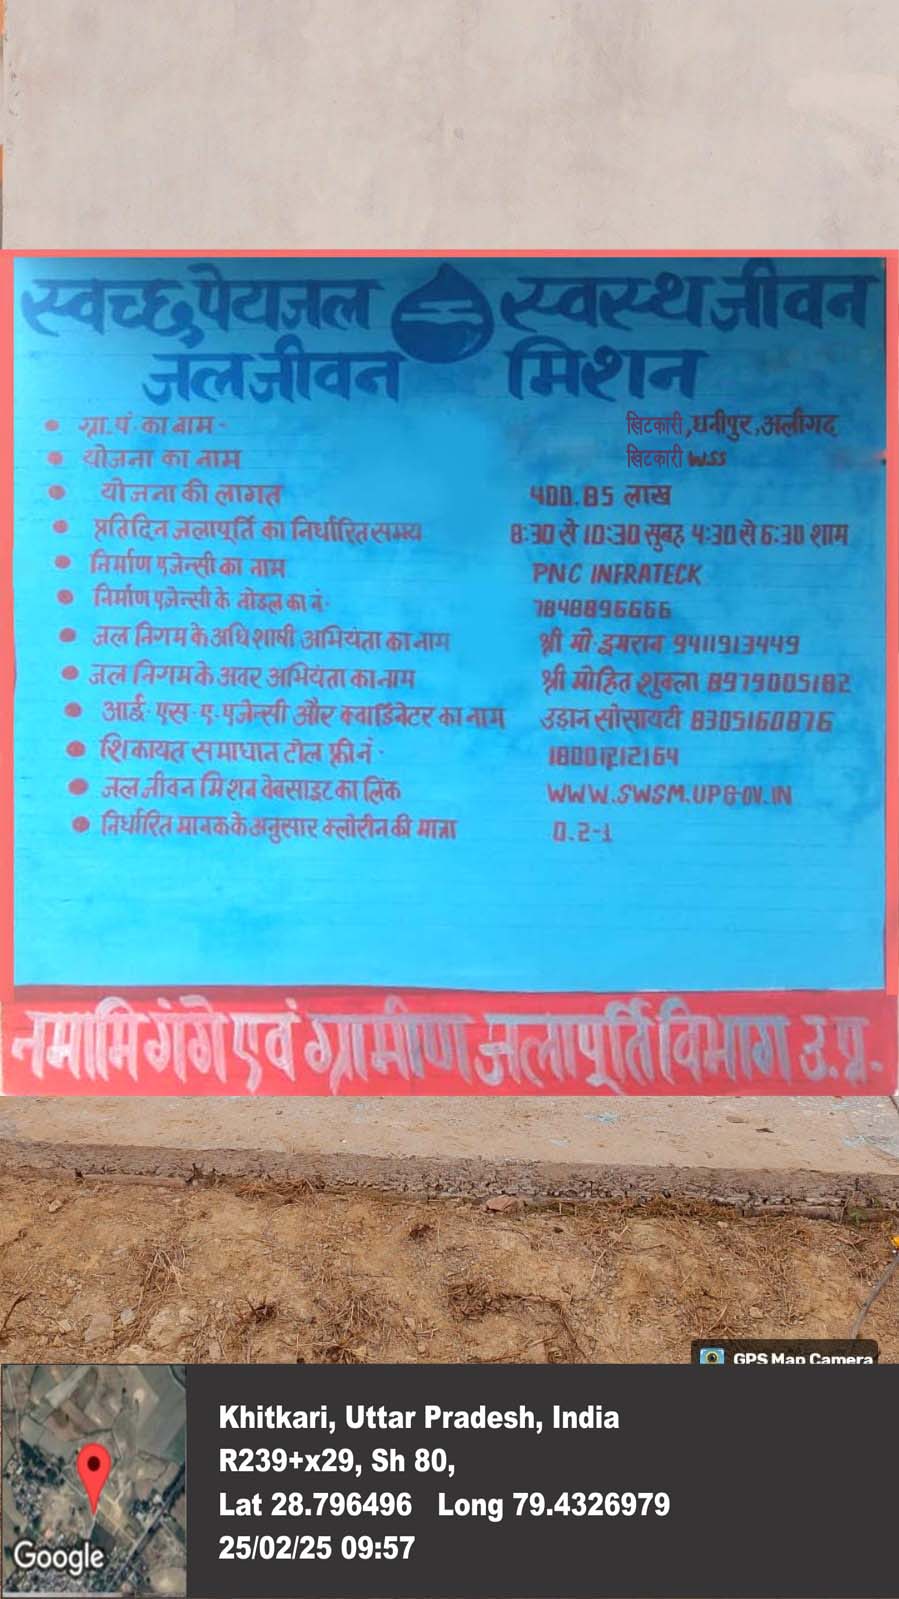 स्वच्छ पेयजल स्वस्थ जीवन
जल जीवन मिशन
ग्रा.पं. का नाम- खिटकारी, धनीपुर, अलीगढ
योजना का नाम खिटकारी WSS
योजना की लागत 400.85 लाख
प्रतिदिन जलापूर्ति का निर्धारित समय 8:30 से 10:30 सुबह 4:30 से 6:30 शाम
निर्माण एजेन्सी का नाम PNC INFRATECK
निर्माण एजेन्सी के नोडल का नं. 7848896666
जल निगम के अधिशाषी अभियंता का नाम श्री मो. इमरान 9411913449
जल निगम के अवर अभियंता का नाम श्री मोहित शुक्ला 8979005182
आई. एस. ए. एजेन्सी और क्वार्डिनेटर का नाम उड़ान सोसायटी 8305160876
शिकायत समाधान टोल फ्री नं. 18001212164
जल जीवन मिशन वेबसाइट का लिंक WWW.SWSM.UPGOV.IN
निर्धारित मानक के अनुसार क्लोरीन की मात्रा 0.2-1
नमामि गंगे एवं ग्रामीण जलापूर्ति विभाग उ.प्र.
GPS Map Camera
Khitkari, Uttar Pradesh, India
R239+x29, Sh 80,
Lat 28.796496 Long 79.4326979
25/02/25 09:57
Google